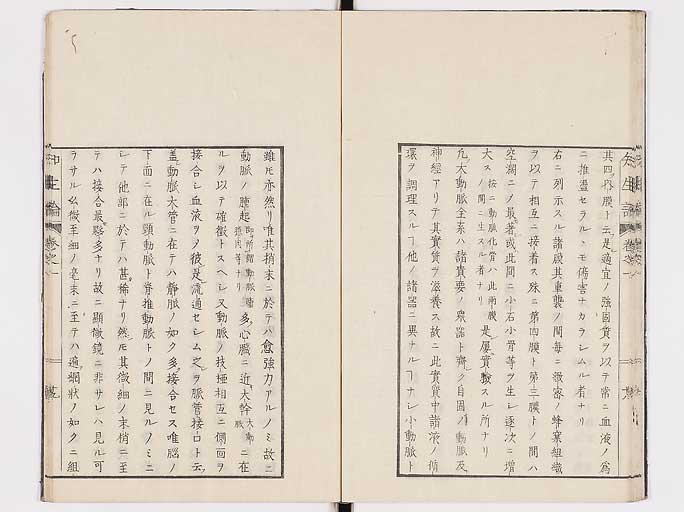 其四ヲ内膜ト云是適宜ノ強固質ヲ以テ常ニ血液ノ為
ニ推盪セラルヽモ傷害ナカラレムル者ナリ
右ニ列示スル諸膜其重襲ノ間毎ニ緻密ノ蜂窠組織
ヲ以テ相互ニ接着ス殊ニ第四膜ト第三膜トノ間ハ
空濶ニノ最著或此間ニ小石小骨等ヲ生レ逐次ニ増
大ス按ニ動脈化骨ハ此両膜ノ間ニ生スル者ナリ是屡實驗スル所ナリ
凢大動脈全系ハ諸貴要ノ衆器ト齊ク自固ノ動脈及
神經アリテ其實質ヲ滋養ス故ニ此實質中諸液ノ循
環ヲ調理スルヿ他ノ諸器ニ異ナルヿナレ小動脈ト
雖モ亦然リ唯其梢末ニ於テハ愈強力アルノミ故ニ
動脈ノ腫起即所謂動脈瘤多心臓ニ近大幹大動脈ニ在
ルヲ以テ確徴トスヘレ又動脈ノ枝極相互ニ側面ヲ
接合レ血液ヲノ彼是流通セレム之ヲ脈管接口ト云
蓋動脈大管ニ在テハ静脈ノ如ク多接合セス唯脳ノ
下面ニ在ル頸動脈ト脊推動脈トノ間ニ見ルノミニ
レテ他部ニ於テハ甚稀ナリ然モ其微細ノ末梢ニ至
テハ接合最夥多ナリ故ニ顕微鏡ニ非サレハ見ル可
ラサル幺微至細ノ毫末ニ至テハ遍網狀ノ如クニ組
知生論
巻之一